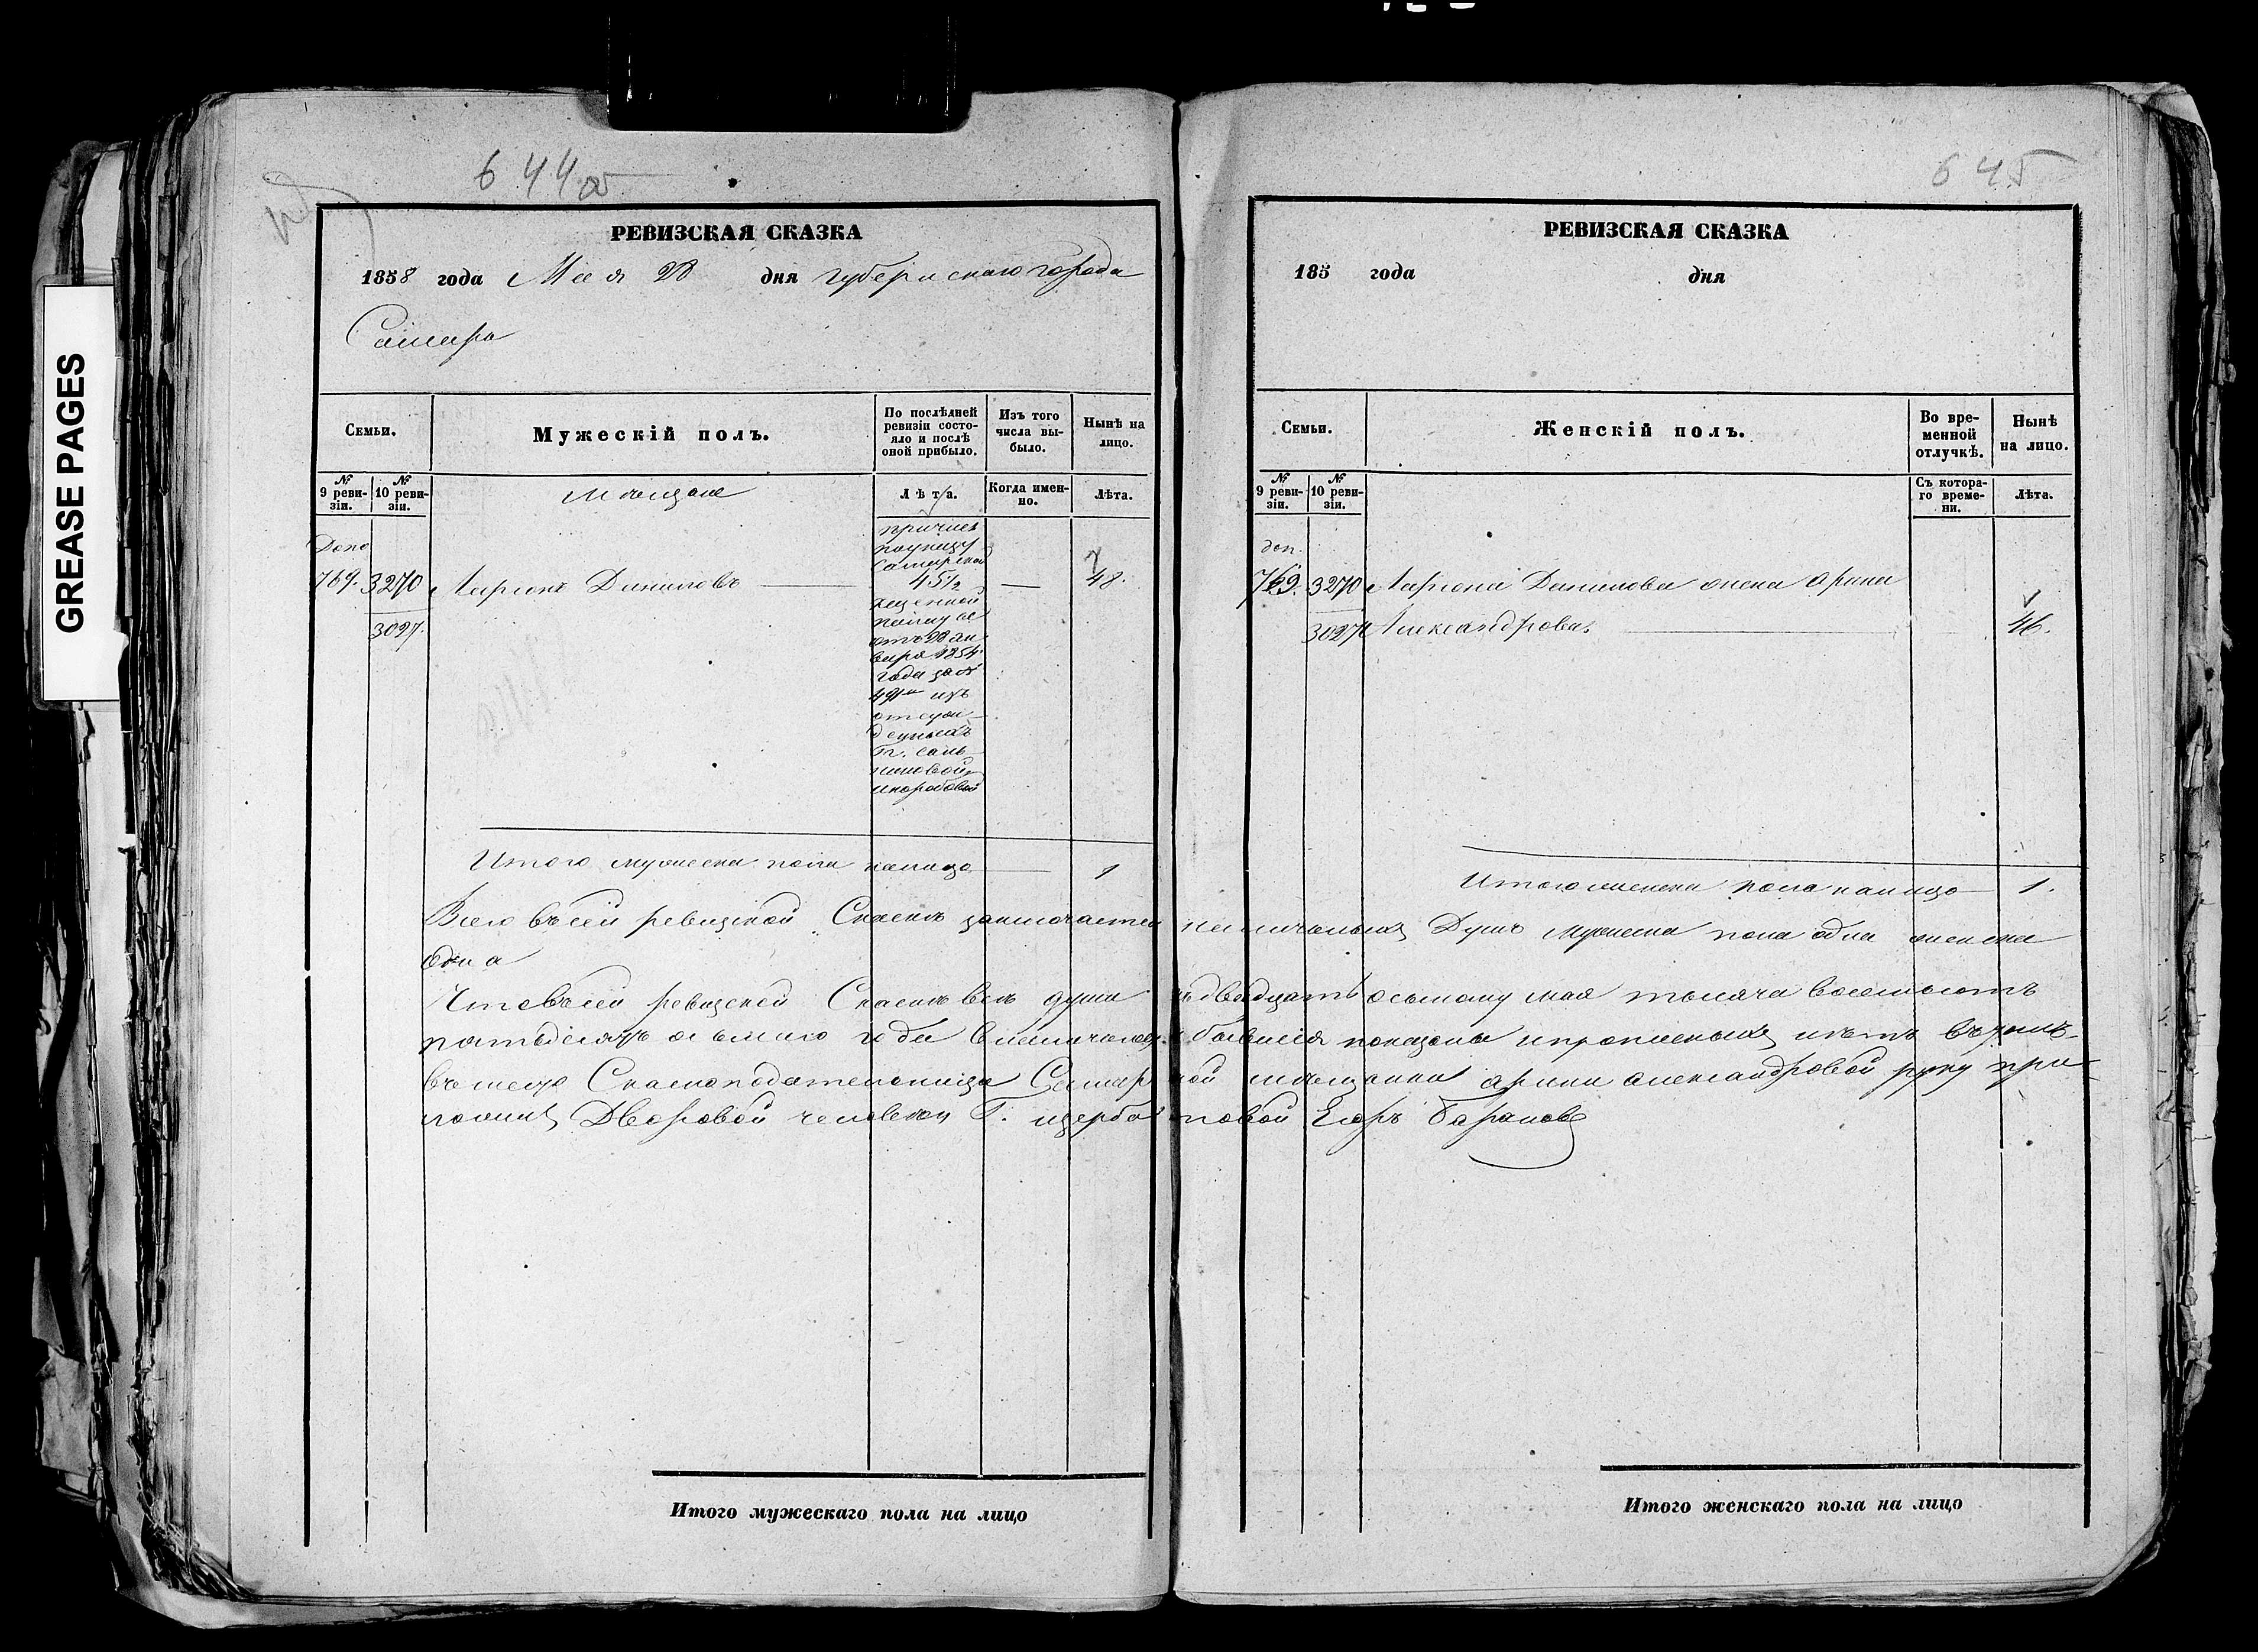 644об
РЕВИЗСКАЯ СКАЗКА
1858 года Мая 28 дня губернскаго города
Самара
Семьи.
Мужескій полъ.
По послѣдней ревизіи состо-
яло и послѣ
оной прибыло.
Изъ того
числа вы-
было.
Нынѣ на
лицо.
№
9 реви-
зіи.
№
10 реви-
зіи.
Мѣщане
Лѣта.
Когда имен-
но.
Лѣта.
Допо
769. 3270 Ларіонъ Даниловъ 45½ — 48.
3027.
причис
поуказу
Самарской
казенной
палаты
отъ 28 ян
варя 1854
года за №
изъ
отсуж
денныхъ
Г.
Итого мужеска пола налицо 1
GREASE PAGES
645
РЕВИЗСКАЯ СКАЗКА
185 года дня
Семьи.
Женскій полъ.
Во вре-
менной
отлучкѣ.
Нынѣ
на лицо.
№
9 реви-
зіи.
№
10 реви-
зіи.
Съ котора-
го време-
ни.
Лѣта.
доп.
769. 3270 Ларіона Данилова жена Арина
3027 Александрова. 46.
Итого женска пола налицо 1.
Всего въ сей ревизской Сказкѣ заключается наличныхъ Душъ мужеска пола одна женска
одна
Что въ сей ревизской Сказкѣ всѣ души къ двадцать осьмому мая тысяча восемьсотъ
пятьдесятъ осьмаго года въ наличности бывшія показаны и прописныхъ нѣтъ въ томъ
вмѣсто Сказкоподательницы Самарской мѣщанки Арины Александровой руку при-
ложилъ Дворовой человекъ Г. Щербаковой Егоръ Барановъ
Итого мужескаго пола на лицо
Итого женскаго пола на лицо